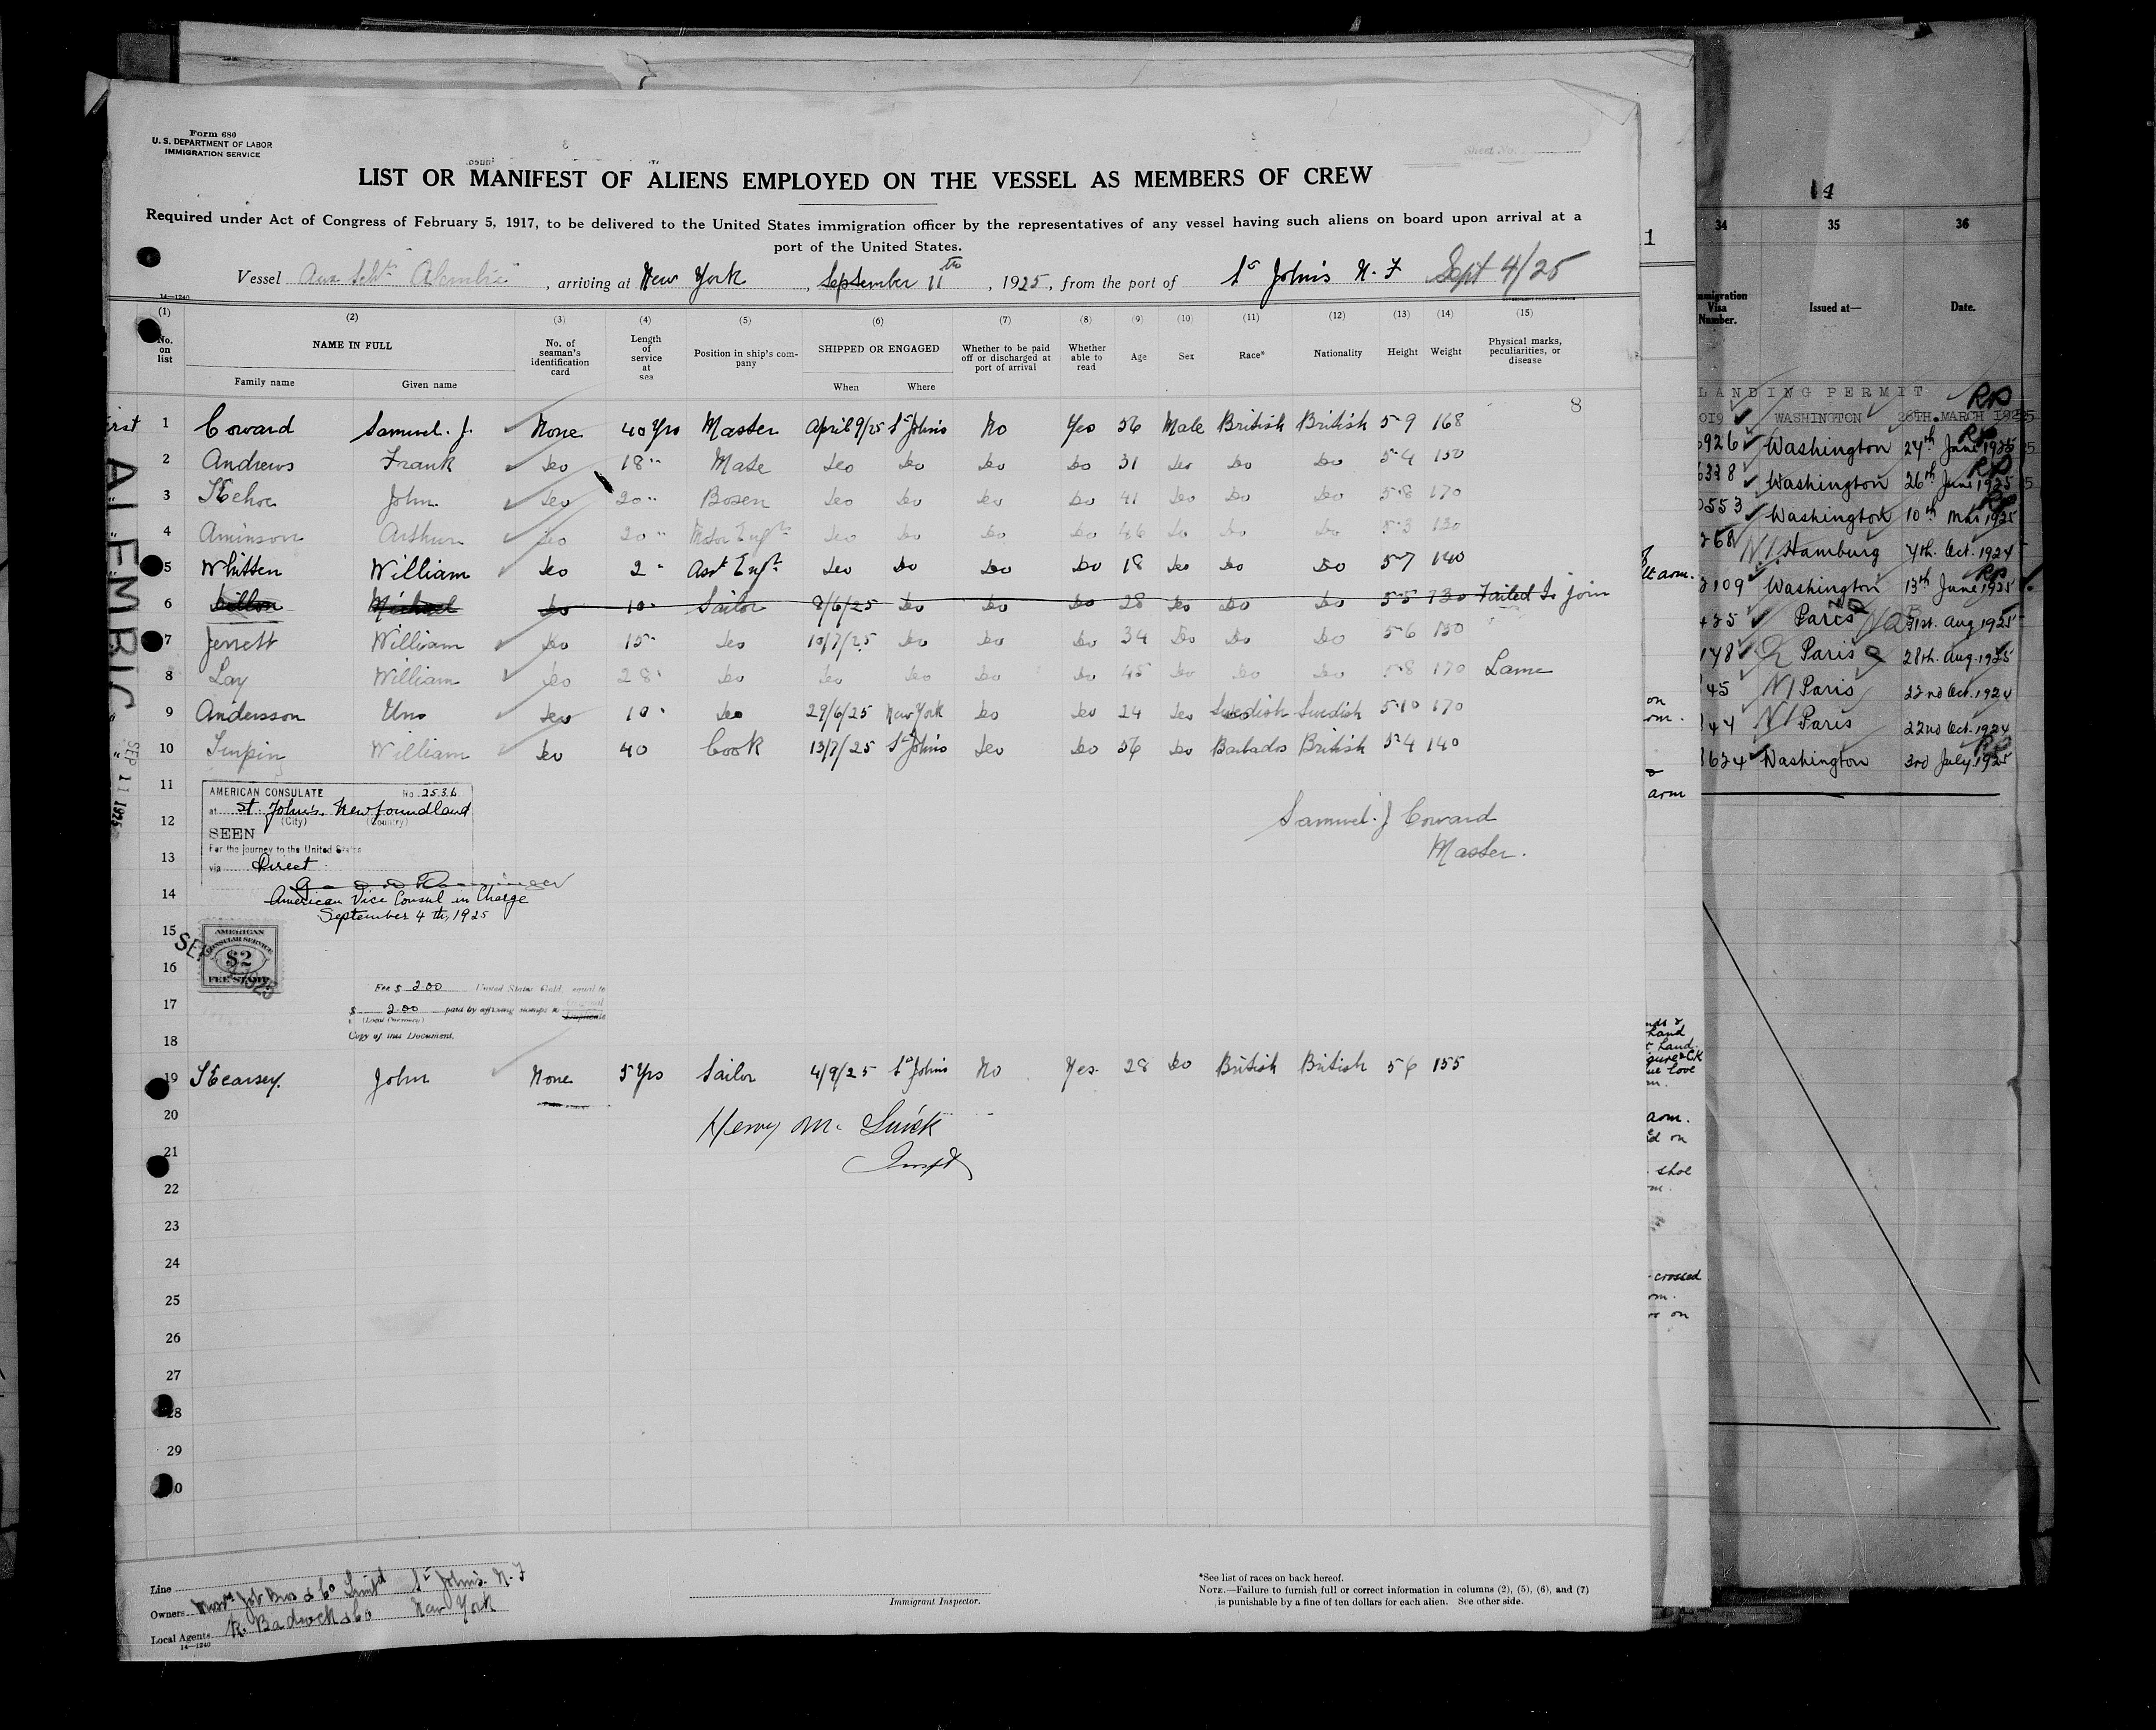 Form 680
U. S. DEPARTMENT OF LABOR
IMMIGRATION SERVICE
Sheet No.
LIST OR MANIFEST OF ALIENS EMPLOYED ON THE VESSEL AS MEMBERS OF CREW
Required under Act of Congress of February 5, 1917, to be delivered to the United States immigration officer by the representatives of any vessel having such aliens on board upon arrival at a
port of the United States.
Vessel Aux Schr Alembic, arriving at New York, September 11th, 1925, from the port of St John's N. F Sept 4/25
14—1240
(1) (2) (3) (4) (5) (6) (7) (8) (9) (10) (11) (12) (13) (14) (15)
No. on list NAME IN FULL Family name Given name No. of seaman's identification card Length of service at sea Position in ship's company SHIPPED OR ENGAGED When Where Whether to be paid off or discharged at port of arrival Whether able to read Age Sex Race* Nationality Height Weight Physical marks, peculiarities, or disease
8
1 Coward Samuel. J. None 40 Yrs Master April 9/25 St John's No Yes 56 Male British British 5-9 168
2 Andrews Frank do 18 " Mate do do do do 31 do do do 5-4 150
3 Kehoe John do 20 " Bosen do do do do 41 do do do 5-8 170
4 Aminson Arthur do 20 " Motor Engr do do do do 46 do do do 5-3 130
5 Whitten William do 2 " Asst Engr do do do do 18 do do do 5-7 140
6 Dillon Michael do 10 " Sailor 8/6/25 do do do 28 do do do 5-5 130 Failed to join
7 Jerrett William do 15 " do 10/7/25 do do do 34 do do do 5-6 130
8 Lay William do 28 " do do do do do 45 do do do 5-8 170 Lame
9 Andersson Uno do 10 " do 29/6/25 New York do do 24 do Swedish Swedish 5-10 170
10 William do 40 Cook 13/7/25 St John's do do 56 do Barbados British 5-4 140
11
12
13
14
15
16
17
18
AMERICAN CONSULATE No. 2536
at St. John's, Newfoundland
(City) (Country)
SEEN
For the journey to the United States
via Direct
American Vice Consul in Charge
September 4th, 1925
Samuel. J Coward
Master.
AMERICAN
CONSULAR SERVICE
$2
FEE STAMP
SEP 1925
Fee $ 2.00 United States Gold, equal to
$ 2.00 paid by affixing stamps to Original Duplicate
(Local Currency)
Copy of this Document.
19 Kearsey. John None 5 Yrs Sailor 4/9/25 St John's No Yes 28 do British British 5 6 155
20
21
Henry M.
Inspt
22
23
24
25
26
27
28
29
30
Line
Owners Messrs Job Bros & Co Limtd St John's. N. F
Local Agents R. Badcock & Co New York
14—1240
Immigrant Inspector.
*See list of races on back hereof.
NOTE.—Failure to furnish full or correct information in columns (2), (5), (6), and (7)
is punishable by a fine of ten dollars for each alien. See other side.
ALEMBIC
SEP 11 1925
14
34 35 36
Immigration Visa Number. Issued at— Date.
LANDING PERMIT
019 WASHINGTON 26TH. MARCH 1925
926 Washington 24th June 1925
338 Washington 26th June 1925
553 Washington 10th Mar 1925
268 Hamburg 4th. Oct. 1924
109 Washington 13th June 1925
425 Paris 31st. Aug 1925
148 Paris 28th. Aug. 1925
45 Paris 22nd Oct. 1924
44 Paris 22nd Oct. 1924
624 Washington 3rd July 1925